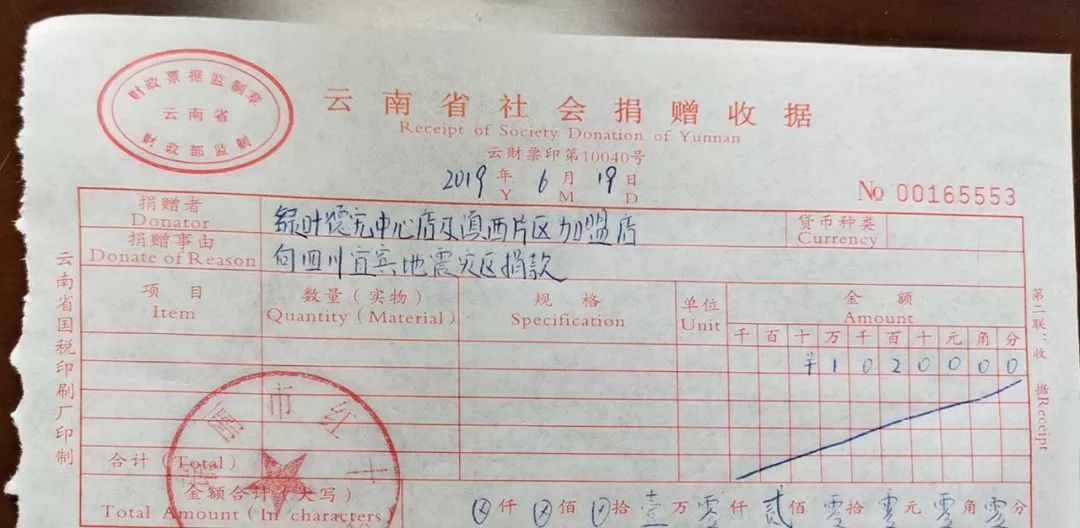 财政票据监制章
云南省
财政部监制
云南省社会捐赠收据
Receipt of Society Donation of Yunnan
云财票印第10040号
2019年 6月 19日
Y M D
№ 00165553
捐赠者 绿叶德宏中心店及滇西片区加盟店 货币种类
Donator Currency
捐赠事由 向四川宜宾地震灾区捐款
Donate of Reason
项目 数量(实物) 规格 单位 金额
Item Quantity(Material) Specification Unit Amount
千 百 十 万 千 百 十 元 角 分
¥ 1 0 2 0 0 0 0
合计(Total)
金额合计(大写) 仟 佰 拾 壹万 零仟 贰佰 零拾 零元 零角 零分
Total Amount(In characters)
市红十
云南省国税印刷厂印制
第二联:收据Receipt